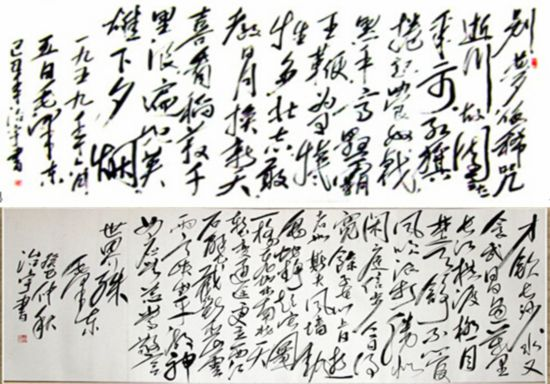 别梦依稀咒
逝川故园
红旗
卷起农奴戟
黑手高悬霸
主鞭为有牺
牲多壮志敢
教日月换新天
喜看稻菽千
重浪遍地英
雄下夕烟
一九五九年六月
五日毛泽东
己丑年治宇书
才饮长沙水又
食武昌鱼万里
长江横渡极目
楚天舒不管
风吹浪打胜似
闲庭信步今日得
宽馀子在川上曰逝
者如斯夫风樯动
龟蛇静起宏图
一桥飞架南北天
堑变通途更立西江
石壁截断巫山云
雨高峡出平湖神
女应无恙当惊
世界殊
毛泽东
癸巳仲秋
治宇书